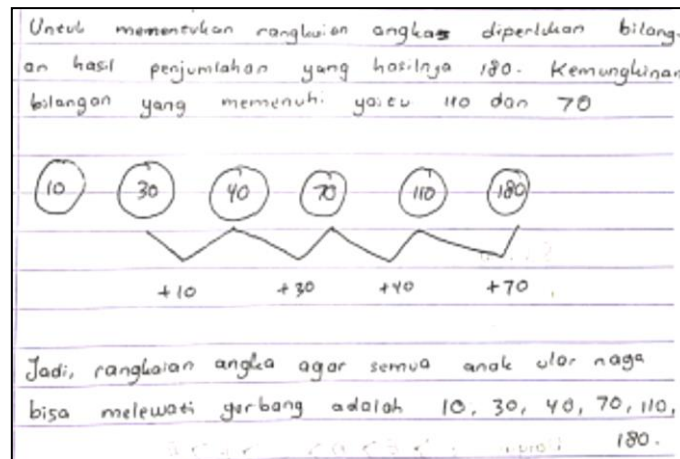 Untuk menentukan rangkaian angka diperlukan bilang-
an hasil penjumlahan yang hasilnya 180. Kemungkinan
bilangan yang memenuhi yaitu 110 dan 70
10 30 40 70 110 180
+10 +30 +40 +70
Jadi, rangkaian angka agar semua anak ular naga
bisa melewati gerbang adalah 10, 30, 40, 70, 110,
180.